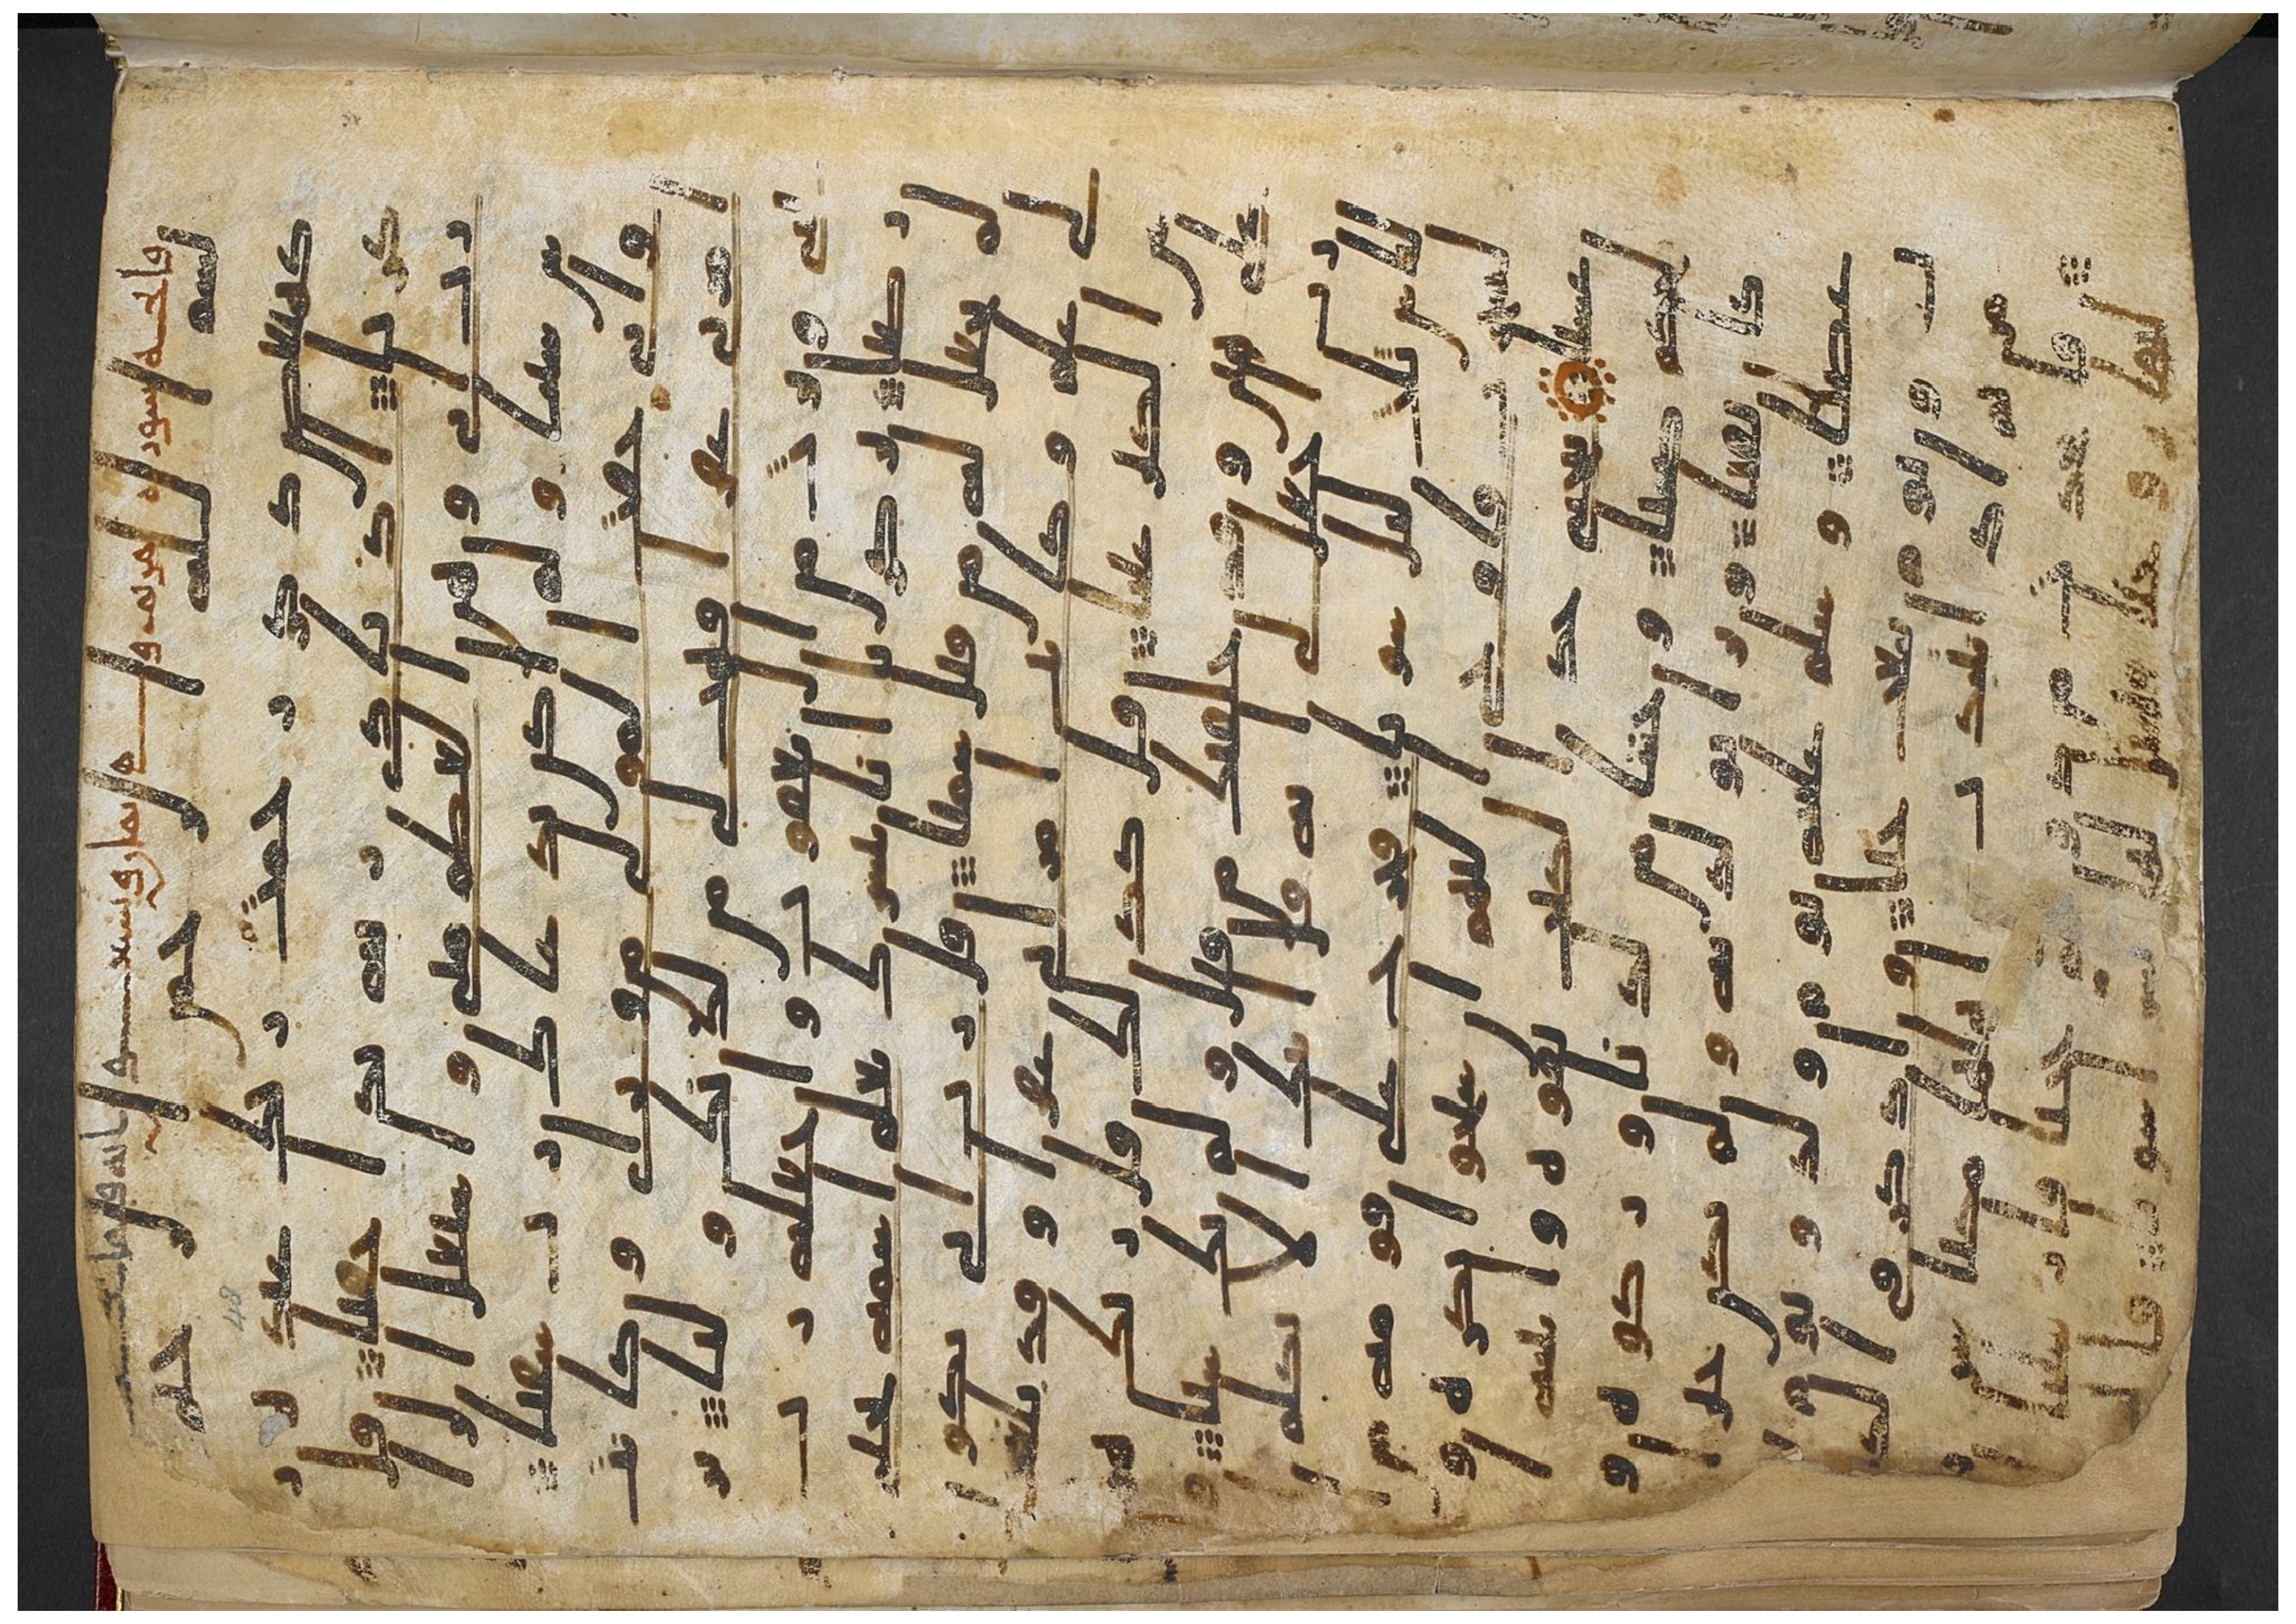 فاتحه سوره مريم
بسم الله الرحمن الرحيم
كهيعص ذكر رحمت ربك عبده ز
كريا اذ نادى ربه ندا خفيا قال ر
ب انى وهن العظم منى واشتعل الرا
س شيبا ولم اكن بدعائك رب شقيا
وانى خفت الموالى من وراى وكانت
امراتى عاقرا فهب لى من لدنك وليا ير
ثنى ويرث من ال يعقوب واجعله رب ر
ضيا يزكريا انا نبشرك بغلم اسمه يحيى
لم نجعل له من قبل سميا قال رب انى يكو
ن لى غلم وكانت امراتى عاقرا وقد بلغت
من الكبر عتيا قال كذلك قال ربك
هو على هين وقد خلقتك من قبل ولم تك شيا
قال رب اجعل لى اية قال ايتك الا تكلم
الناس ثلث ليال سويا فخرج على قومه من ا
لمحراب فاوحى اليهم ان سبحوا بكرة و
عشيا ييحيى خذ الكتب بقوة واتينه ا
لحكم صبيا وحنانا من لدنا وزكوة و
كان تقيا وبرا بولديه ولم يكن جبا
را عصيا وسلم عليه يوم ولد ويوم
يموت ويوم يبعث حيا واذكر فى الكتب
مريم اذ انتبذت من اهلها مكانا شر
قيا فاتخذت من دونهم حجابا فارسلنا
اليها روحنا فتمثل لها بشرا سويا قا